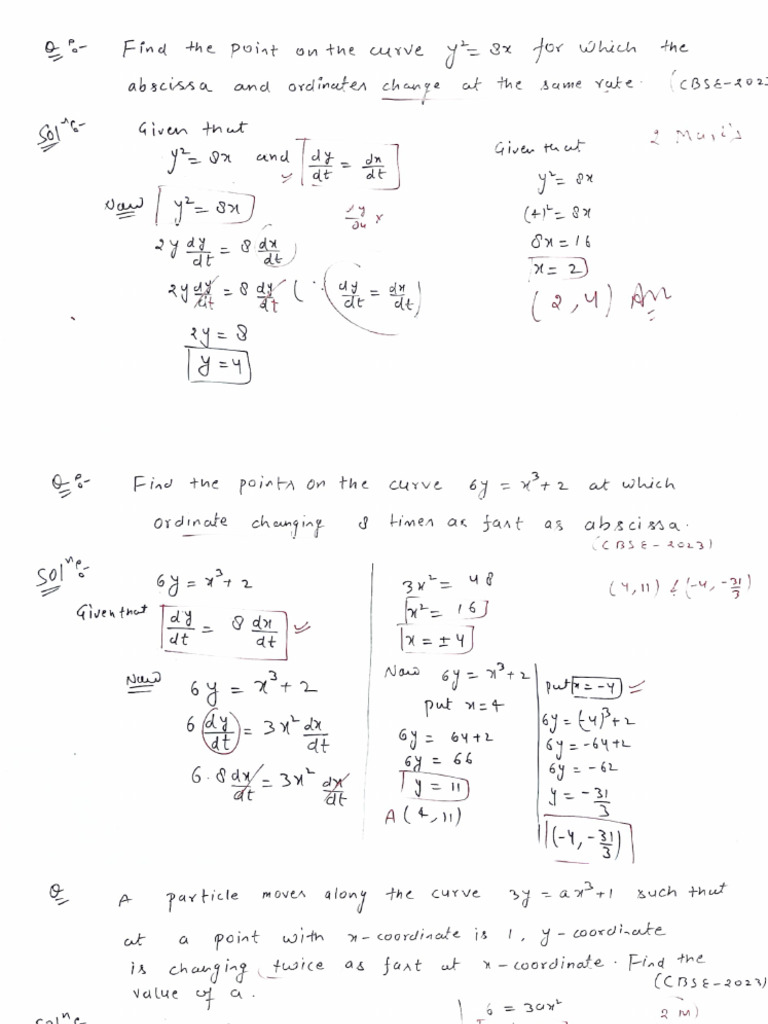 Q:- Find the point on the curve y² = 8x for which the
abscissa and ordinates change at the same rate. (CBSE-202
Solⁿ:- Given that
y² = 8x and dy/dt = dx/dt
Now y² = 8x
2y dy/dt = 8 dx/dt
2y dy/dt = 8 dy/dt (∵ dy/dt = dx/dt)
2y = 8
y = 4
2 Marks
Given that
y² = 8x
(4)² = 8x
8x = 16
x = 2
(2, 4) Ans
Q:- Find the points on the curve 6y = x³ + 2 at which
ordinate changing 8 times as fast as abscissa.
(CBSE-2023)
Solⁿ:- 6y = x³ + 2
Given that dy/dt = 8 dx/dt
Now 6y = x³ + 2
6 dy/dt = 3x² dx/dt
6 · 8 dx/dt = 3x² dx/dt
3x² = 48
x² = 16
x = ± 4
(4, 11) & (-4, -31/3)
Now 6y = x³ + 2
put x = 4
6y = 64 + 2
6y = 66
y = 11
A (4, 11)
put x = -4
6y = (-4)³ + 2
6y = -64 + 2
6y = -62
y = -31/3
(-4, -31/3)
Q A particle moves along the curve 3y = ax³ + 1 such that
at a point with x-coordinate is 1, y-coordinate
is changing twice as fast at x-coordinate. Find the
value of a. (CBSE-2023)
Solⁿ:-
6 = 3ax²
2 M)